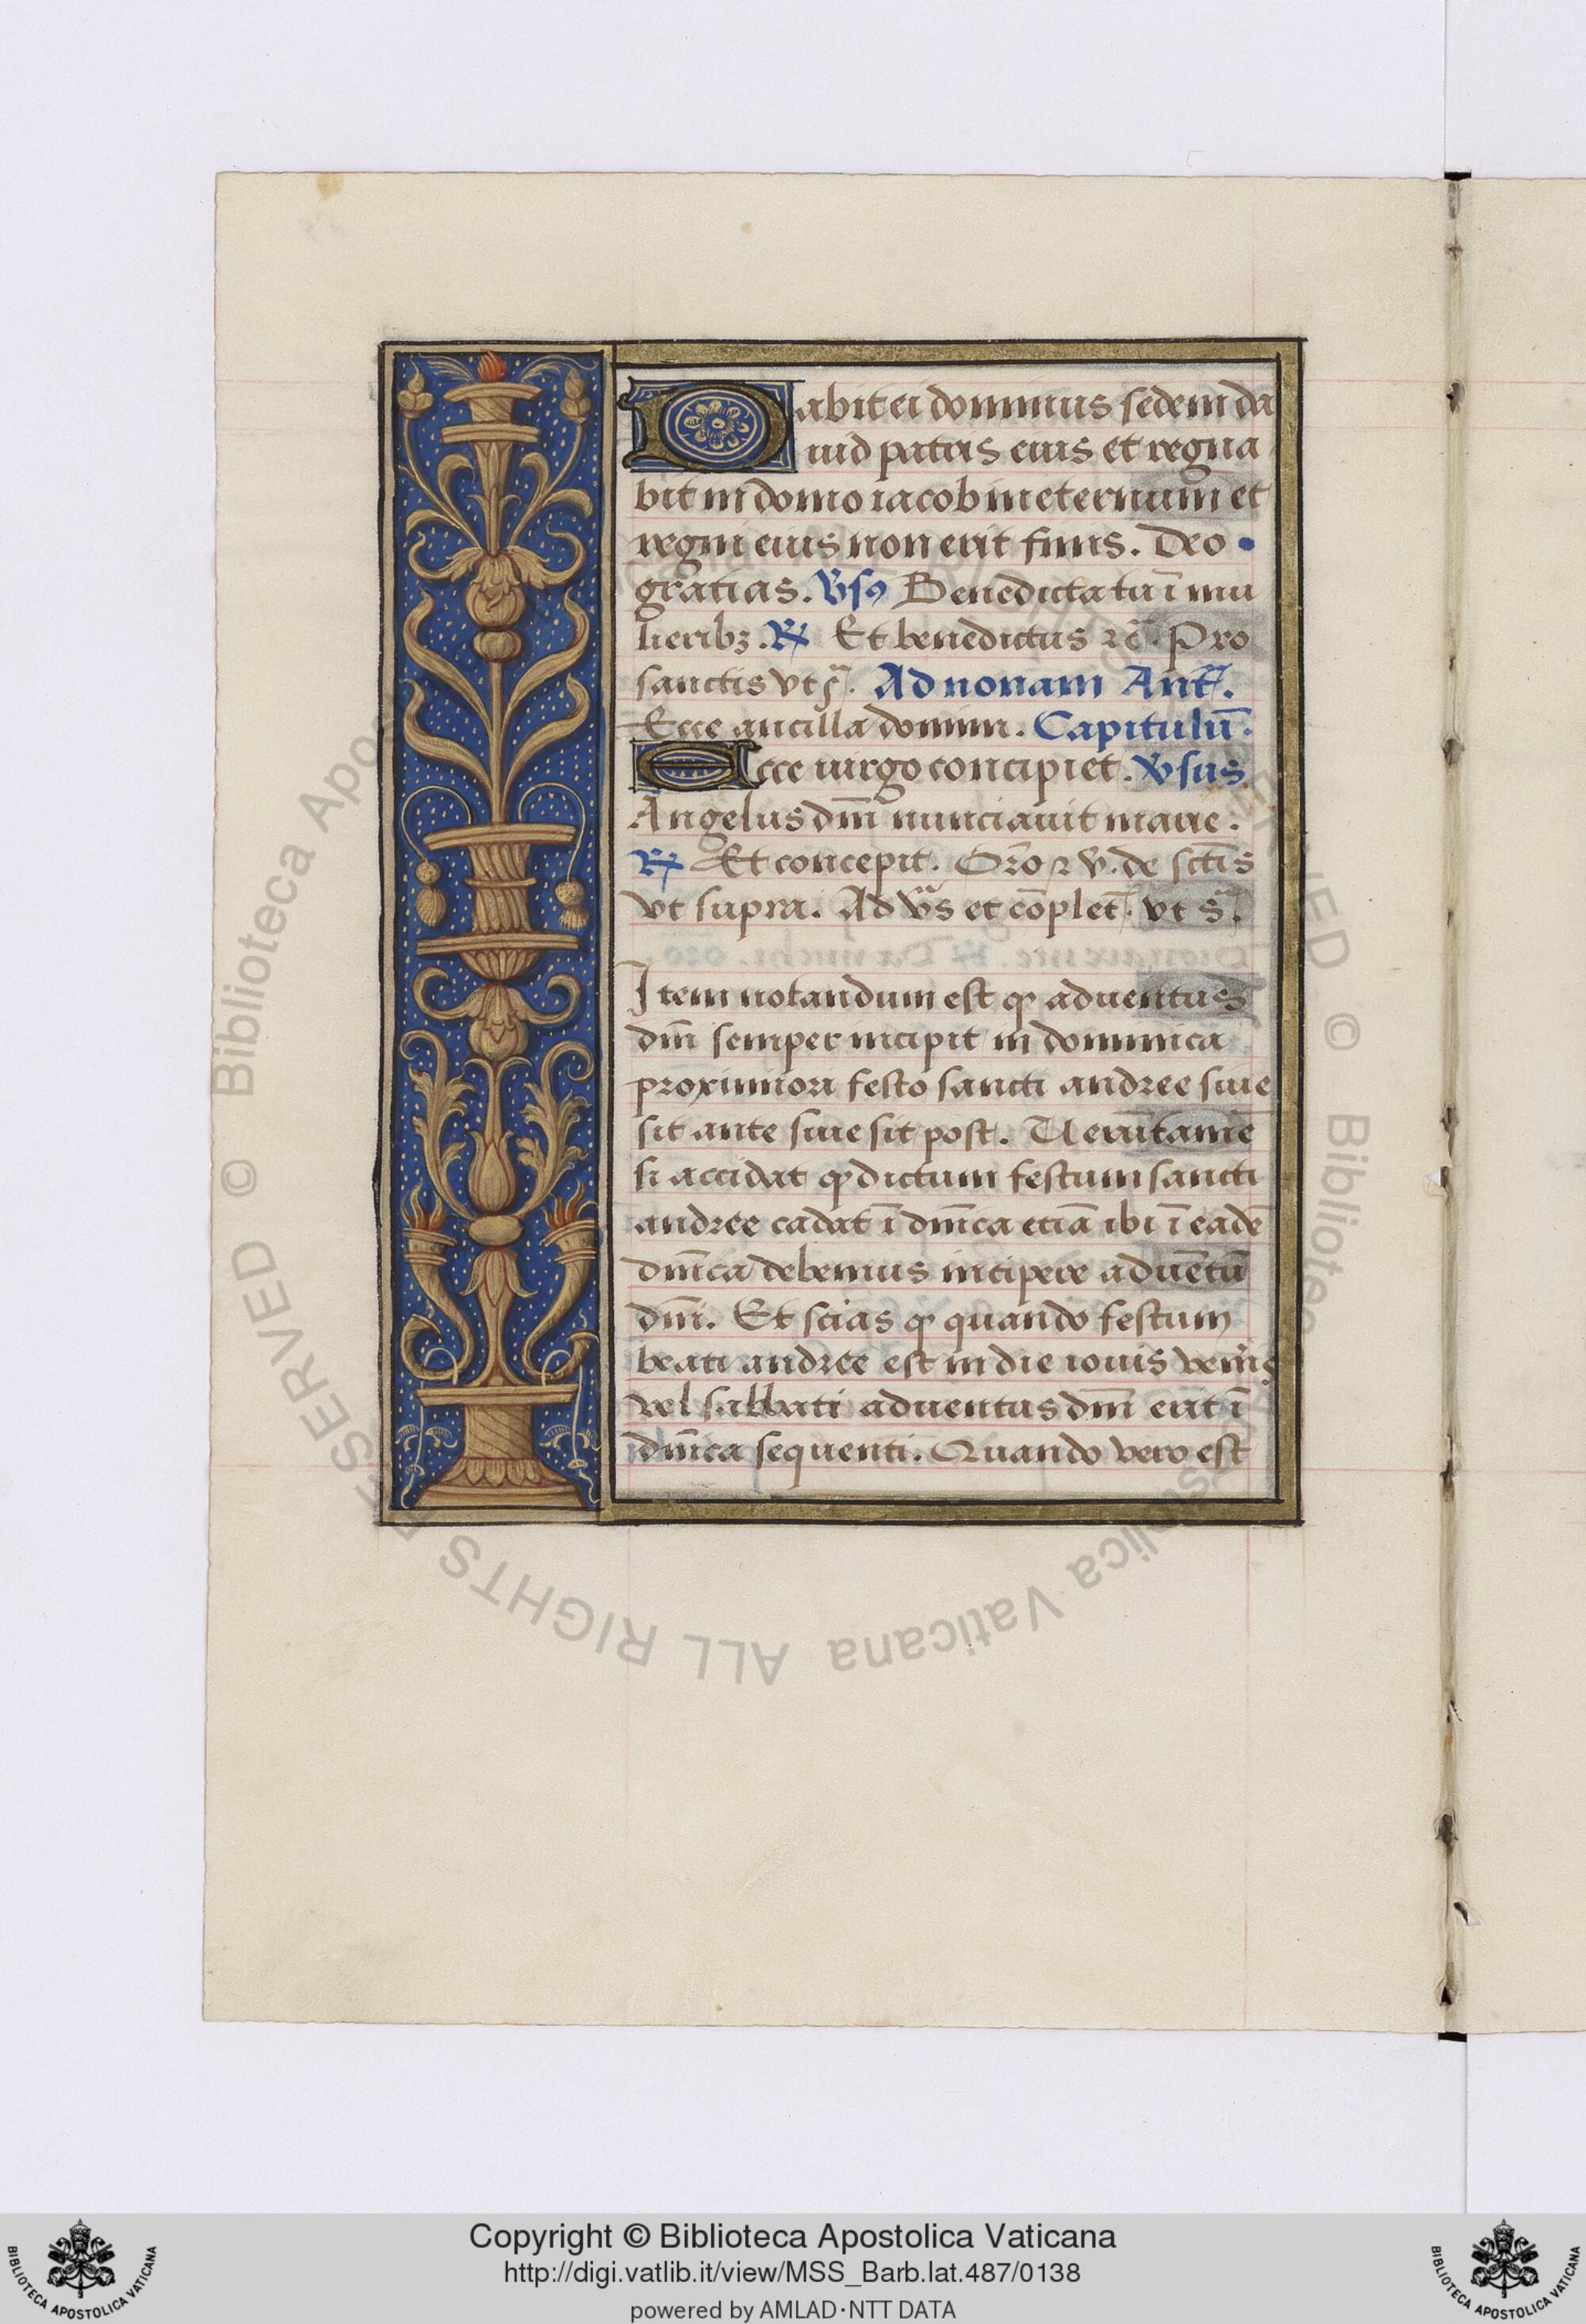 Dabit ei dominus sedem da
uid patris eius et regna
bit in domo iacob in eternum et
regni eius non erit finis. Deo
gratias. v̄sꝰ Benedicta tu ī mu
lieribꝫ. ℟ Et benedictus ⁊c̄. Pro
sanctis vt sᷓ. Ad nonam Anᷓt.
Ecce ancilla domini. Capitulū.
Ecce uirgo concipiet. v̄sus
Angelus dm̄i nunciauit marie.
℟ Et concepit. Oro ⁊ v. de sct̄is
vt supra. Ad vᷓs et cōplet. vt sᷓ.
Item notandum est ꝙ aduentus
dn̄i semper incipit in dominica
proximiori festo sancti andree siue
sit ante siue sit post. Uerūtamē
si accidat ꝙ dictum festum sancti
andree cadat ī dn̄ica etiā ibi ī eadē
dn̄ica debemus incipere aduētū
dn̄i. Et scias ꝙ quando festum
beati andree est in die iouis venis
vel sabbati aduentus dn̄i erit ī
dn̄ica sequenti. Quando vero est
Copyright © Biblioteca Apostolica Vaticana
http://digi.vatlib.it/view/MSS_Barb.lat.487/0138
powered by AMLAD·NTT DATA
BIBLIOTECA APOSTOLICA VATICANA
BIBLIOTECA APOSTOLICA VATICANA
© Biblioteca Apostolica Vaticana ALL RIGHTS RESERVED